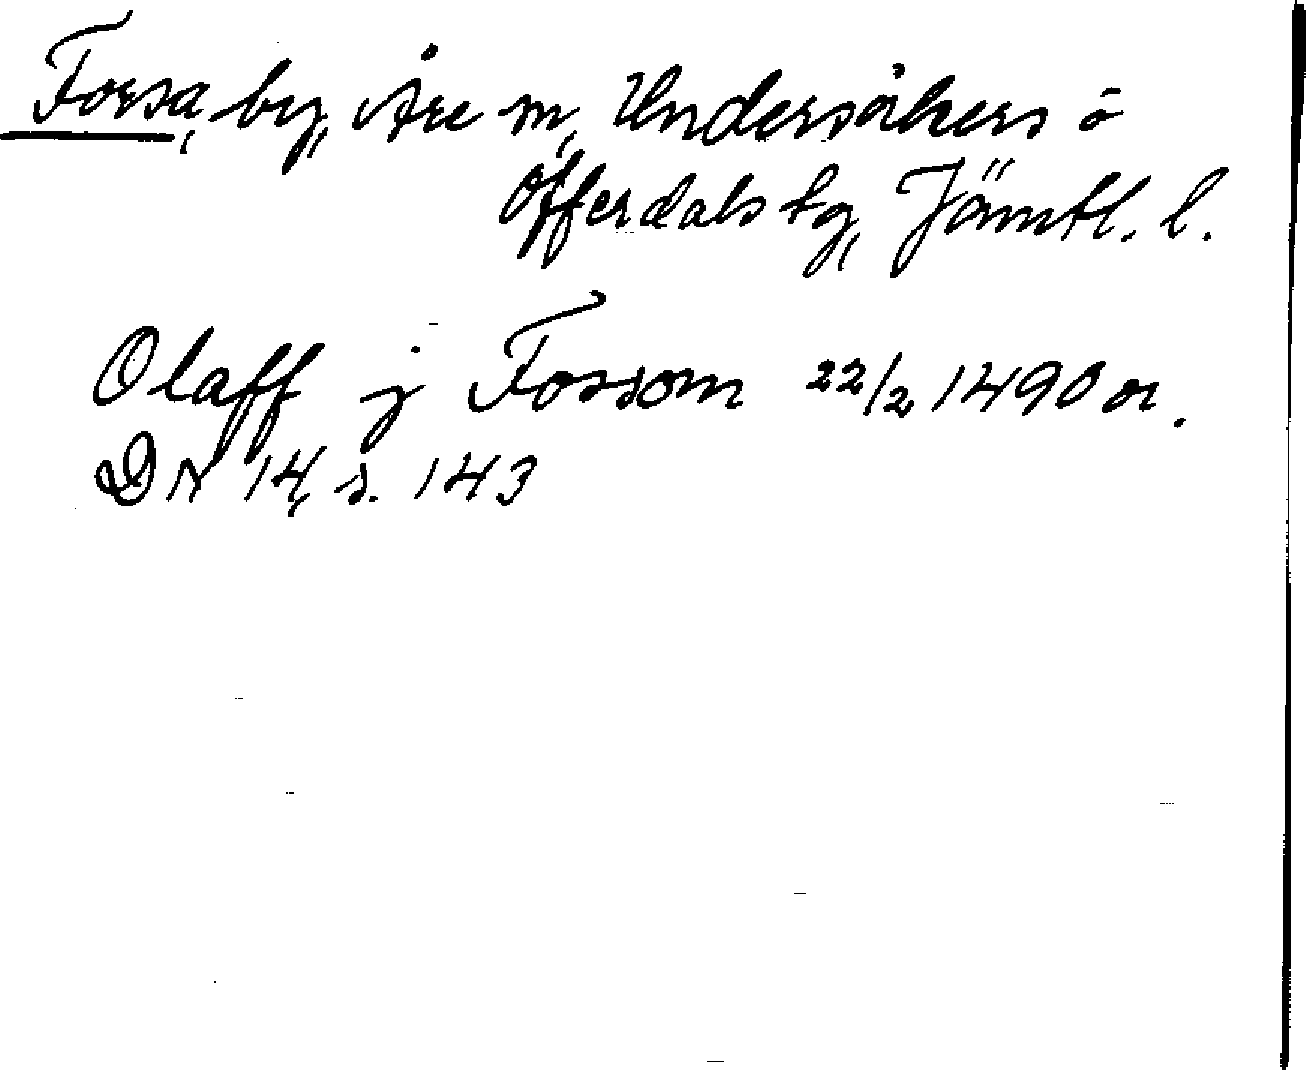 Forsa, by, Åre sn, Undersåkers o
Offerdals tg, Jämtl. l.
Olaff j Fossom 22/2 1490 or.
DN 14, s. 143